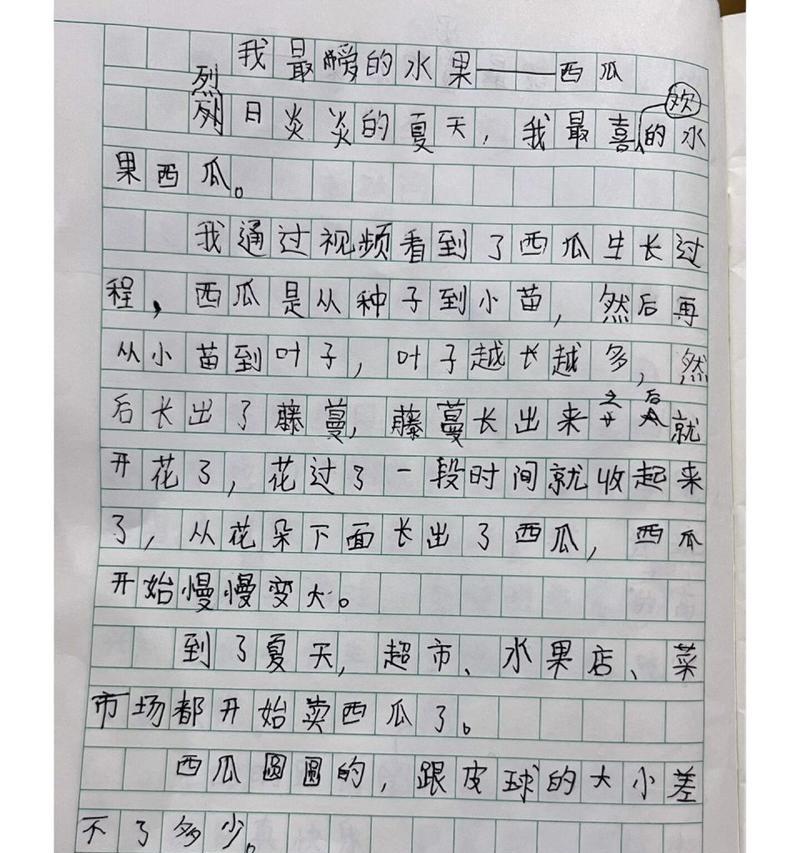 我最爱的水果——西瓜
烈日炎炎的夏天，我最喜欢的水
果西瓜。
我通过视频看到了西瓜生长过
程，西瓜是从种子到小苗，然后再
从小苗到叶子，叶子越长越多，然
后长出了藤蔓，藤蔓长出来之后就
开花了，花过了一段时间就收起来
了，从花朵下面长出了西瓜，西瓜
开始慢慢变大。
到了夏天，超市、水果店、菜
市场都开始卖西瓜了。
西瓜圆圆的，跟皮球的大小差
不了多少。